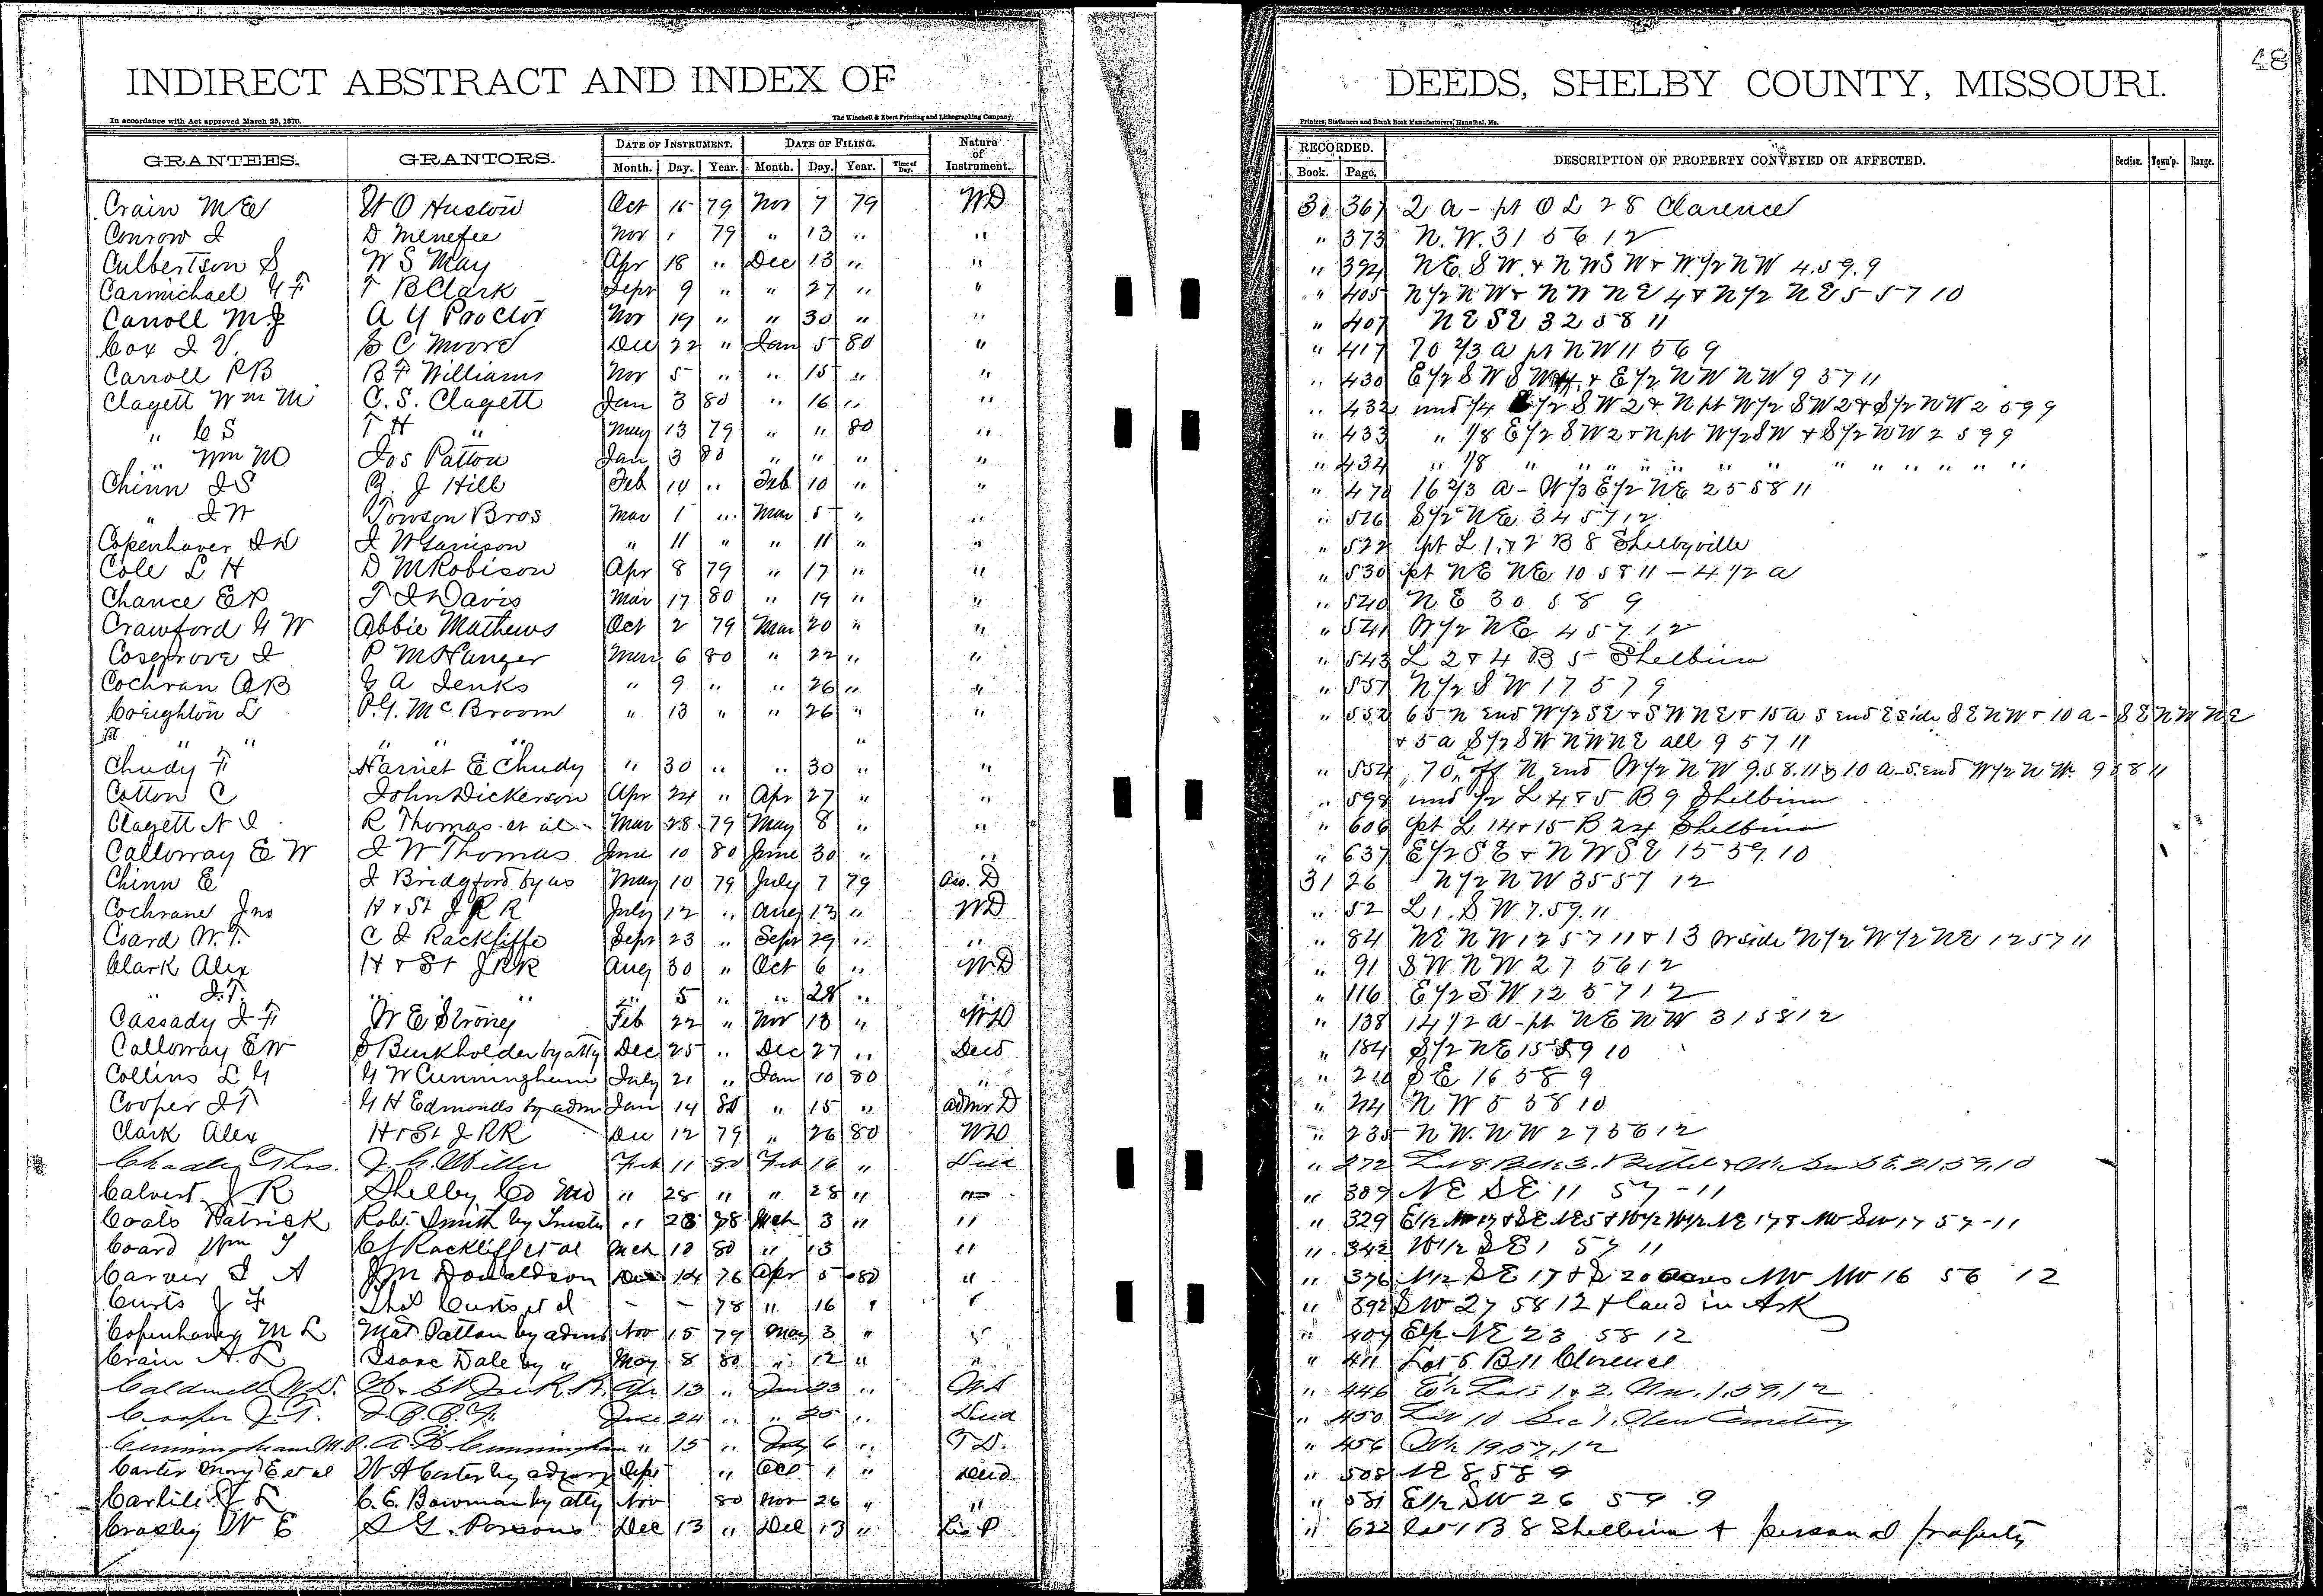 48
INDIRECT ABSTRACT AND INDEX OF DEEDS, SHELBY COUNTY, MISSOURI.
In accordance with Act approved March 25, 1870. The Winchell & Ebert Printing and Lithographing Company, Printers, Stationers and Blank Book Manufacturers, Hannibal, Mo.
GRANTEES. GRANTORS. DATE OF INSTRUMENT. DATE OF FILING. Nature of Instrument. RECORDED. DESCRIPTION OF PROPERTY CONVEYED OR AFFECTED. Section. Town'p. Range.
Month. Day. Year. Month. Day. Year. Time of Day. Book. Page.
Crain M E W O Huston Oct 15 79 Nov 7 79 WD 30 367 2 a - pt O L 28 Clarence
Conrow J D Menefee Nov 1 79 " 13 " " " 373 N.W. 31 56 12
Culbertson S W S May Apr 18 " Dec 13 " " " 394 NE. SW. & NWSW & W 1/2 NW 4.59.9
Carmichael G F T B Clark Sepr 9 " " 27 " " " 405 N 1/2 NW & NW NE 4 & N 1/2 NE 5 57 10
Carroll M J A Y Proctor Nov 19 " " 30 " " " 407 NE SE 32 58 11
Cox J V. S C Moore Dec 22 " Jan 5 80 " " 417 70 2/3 a pt NW 11 56 9
Carroll P B B F Williams Nov 5 " " 15 " " " 430 E 1/2 SW SW & E 1/2 NW NW 9 57 11
Clagett Wm M C. S. Clagett Jan 3 80 " 16 " " " 432 und 1/4 E 1/2 SW 2 & N pt W 1/2 SW 2 & S 1/2 NW 2 59 9
" C S T H " May 13 79 " " 80 " " 433 " 1/8 E 1/2 SW 2 & N pt W 1/2 SW & S 1/2 NW 2 59 9
" Wm M Jos Patton Jan 3 80 " " " " " 434 " 1/8 " " " " " " " " " " " "
Chinn J S R. J Hill Feb 10 " Feb 10 " " " 470 16 2/3 a - W 1/3 E 1/2 NE 25 58 11
" J W Towson Bros Mar 1 " Mar 5 " " " 516 S 1/2 NE 34 57 12
Copenhaver J D J W Garrison " 11 " " 11 " " " 522 pt L 1 & 2 B 8 Shelbyville
Cole L H D M Robison Apr 8 79 " 17 " " " 530 pt NE NE 10 58 11 - 4 1/2 a
Chance E P T J Davis Mar 17 80 " 19 " " " 540 NE 30 58 9
Crawford G W Abbie Mathews Oct 2 79 Mar 20 " " " 541 W 1/2 NE 4 57 12
Cosgrove J P M Hanger Mar 6 80 " 22 " " " 543 L 2 & 4 B 5 Shelbina
Cochran A B G A Jenks " 9 " " 26 " " " 551 N 1/2 SW 17 57 9
Creighton L P. G. McBroom " 13 " " 26 " " " 552 65 N end W 1/2 SE & SW NE & 15 a S end E side SE NW & 10 a - SE NW NE
" " " " " " & 5 a S 1/2 SW NW NE all 9 57 11
Chudy F Harriet E Chudy " 30 " " 30 " " " 554 70 a off N end W 1/2 NW 9.58.11 & 10 a - S. end W 1/2 NW. 9 58 11
Cotton C John Dickerson Apr 24 " Apr 27 " " " 598 und 1/2 L 4 & 5 B 9 Shelbina
Clagett N J R Thomas et al Mar 28 79 May 8 " " " 606 pt L 14 & 15 B 24 Shelbina
Calloway E W J W Thomas June 10 80 June 30 " " " 637 E 1/2 SE & NW SE 15 59.10
Chinn E J Bridgford by as May 10 79 July 7 79 Ass. D 31 26 N 1/2 NW 35 57 12
Cochrane Jno H & St J R R July 12 " Aug 13 " WD " 52 L 1. SW 7.59.11
Coard W. T. C J Rackliffe Sepr 23 " Sepr 29 " " " 84 NE NW 12 57 11 & 13 W side N 1/2 W 1/2 NE 12 57 11
Clark Alex H & St J RR Aug 30 " Oct 6 " WD " 91 SW NW 27 56 12
" J. T. " " " " 5 " " 28 " " " 116 E 1/2 SW 12 57 12
Cassady J F W E Strong Feb 22 " Nov 18 " WD " 138 14 1/2 a - pt NE NW 31 58 12
Calloway E W S Burkholder by atty Dec 25 " Dec 27 " Deed " 184 S 1/2 NE 15 59 10
Collins L G G W Cunningham July 21 " Jan 10 80 " " 210 SE 16 58 9
Cooper J T G H Edmonds by adm Jan 14 80 " 15 " Admr D " 214 NW 5 58 10
Clark Alex H & St J RR Dec 12 79 " 26 80 WD " 235 NW. NW 27 56 12
Thos. J. G. Miller Feb 11 80 Feb 16 " Deed " 272
Calvert J R Shelby Co Mo " 28 " " 28 " " " 309 NE SE 11 57 - 11
Coats Patrick Robt Smith by Trustee " 28 78 Mch 3 " " " 329
Coard Wm T C J Rackliff et al Mch 10 80 " 13 " " 342 W 1/2 SE 1 57 11
Carver J A J M Donaldson Dec 14 76 Apr 5 80 " " 376 N 1/2 SE 17 & S 20 acres NW NW 16 56 12
Curts J F Thos Curts et al - - 78 " 16 " " " 392 SW 27 58 12 & land in Ark
Copenhaver M L Mat Patton by adms Nov 15 79 May 3 " " " 407 E 1/2 NE 23 58 12
Crain A. L Isaac Dale by " May 8 80 " 12 " " " 411 Lot 5 B 11 Clarence
Caldwell W. D. H & St Joe R R. Apr 13 " June 23 " WD " 446 Lots 1 & 2. 1.59.12
Cooper J. T. June 24 " " 25 " Deed " 450 Lot 10 Sec 1. New Cemetery
Cunningham M. P. A Cunningham " 15 " July 6 " T D. " 456 19.57.12
Carter Mary E et al W A Carter by Sept " Oct 1 " Deed " 508 NE 8 58 9
Carlile J L C. E. Bowman by atty Nov 80 Nov 26 " " " 581 E 1/2 SW 26 59 9
Crosby W E S G. Parsons Dec 13 " Dec 13 " " 622 Lot 1 B 8 Shelbina & personal property